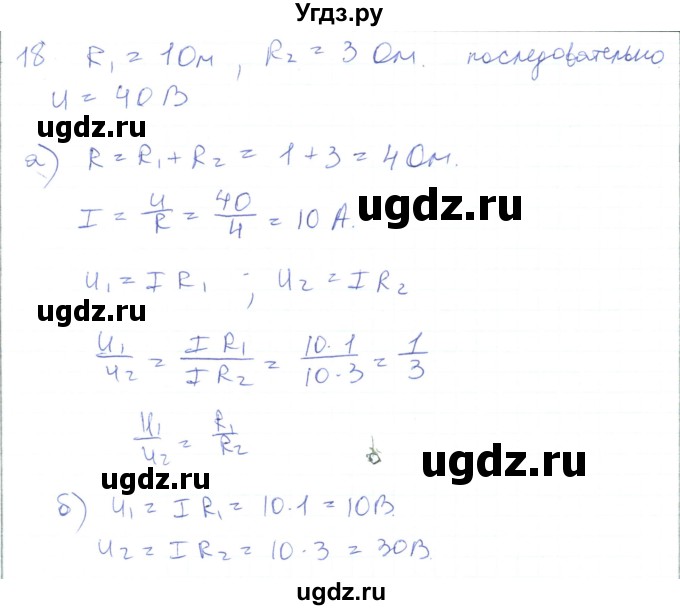 Угдз.ру
18 R₁ = 1 Ом, R₂ = 3 Ом. последовательно
U = 40 В
ugdz.ru
а) R = R₁ + R₂ = 1 + 3 = 4 Ом.
I = U/R = 40/4 = 10 А.
ugdz.ru
U₁ = I R₁ ; U₂ = I R₂
ugdz.ru
U₁/U₂ = I R₁/I R₂ = 10·1/10·3 = 1/3
U₁/U₂ = R₁/R₂
ugdz.ru
ugdz.ru
б) U₁ = I R₁ = 10·1 = 10 В.
U₂ = I R₂ = 10·3 = 30 В.
ugdz.ru